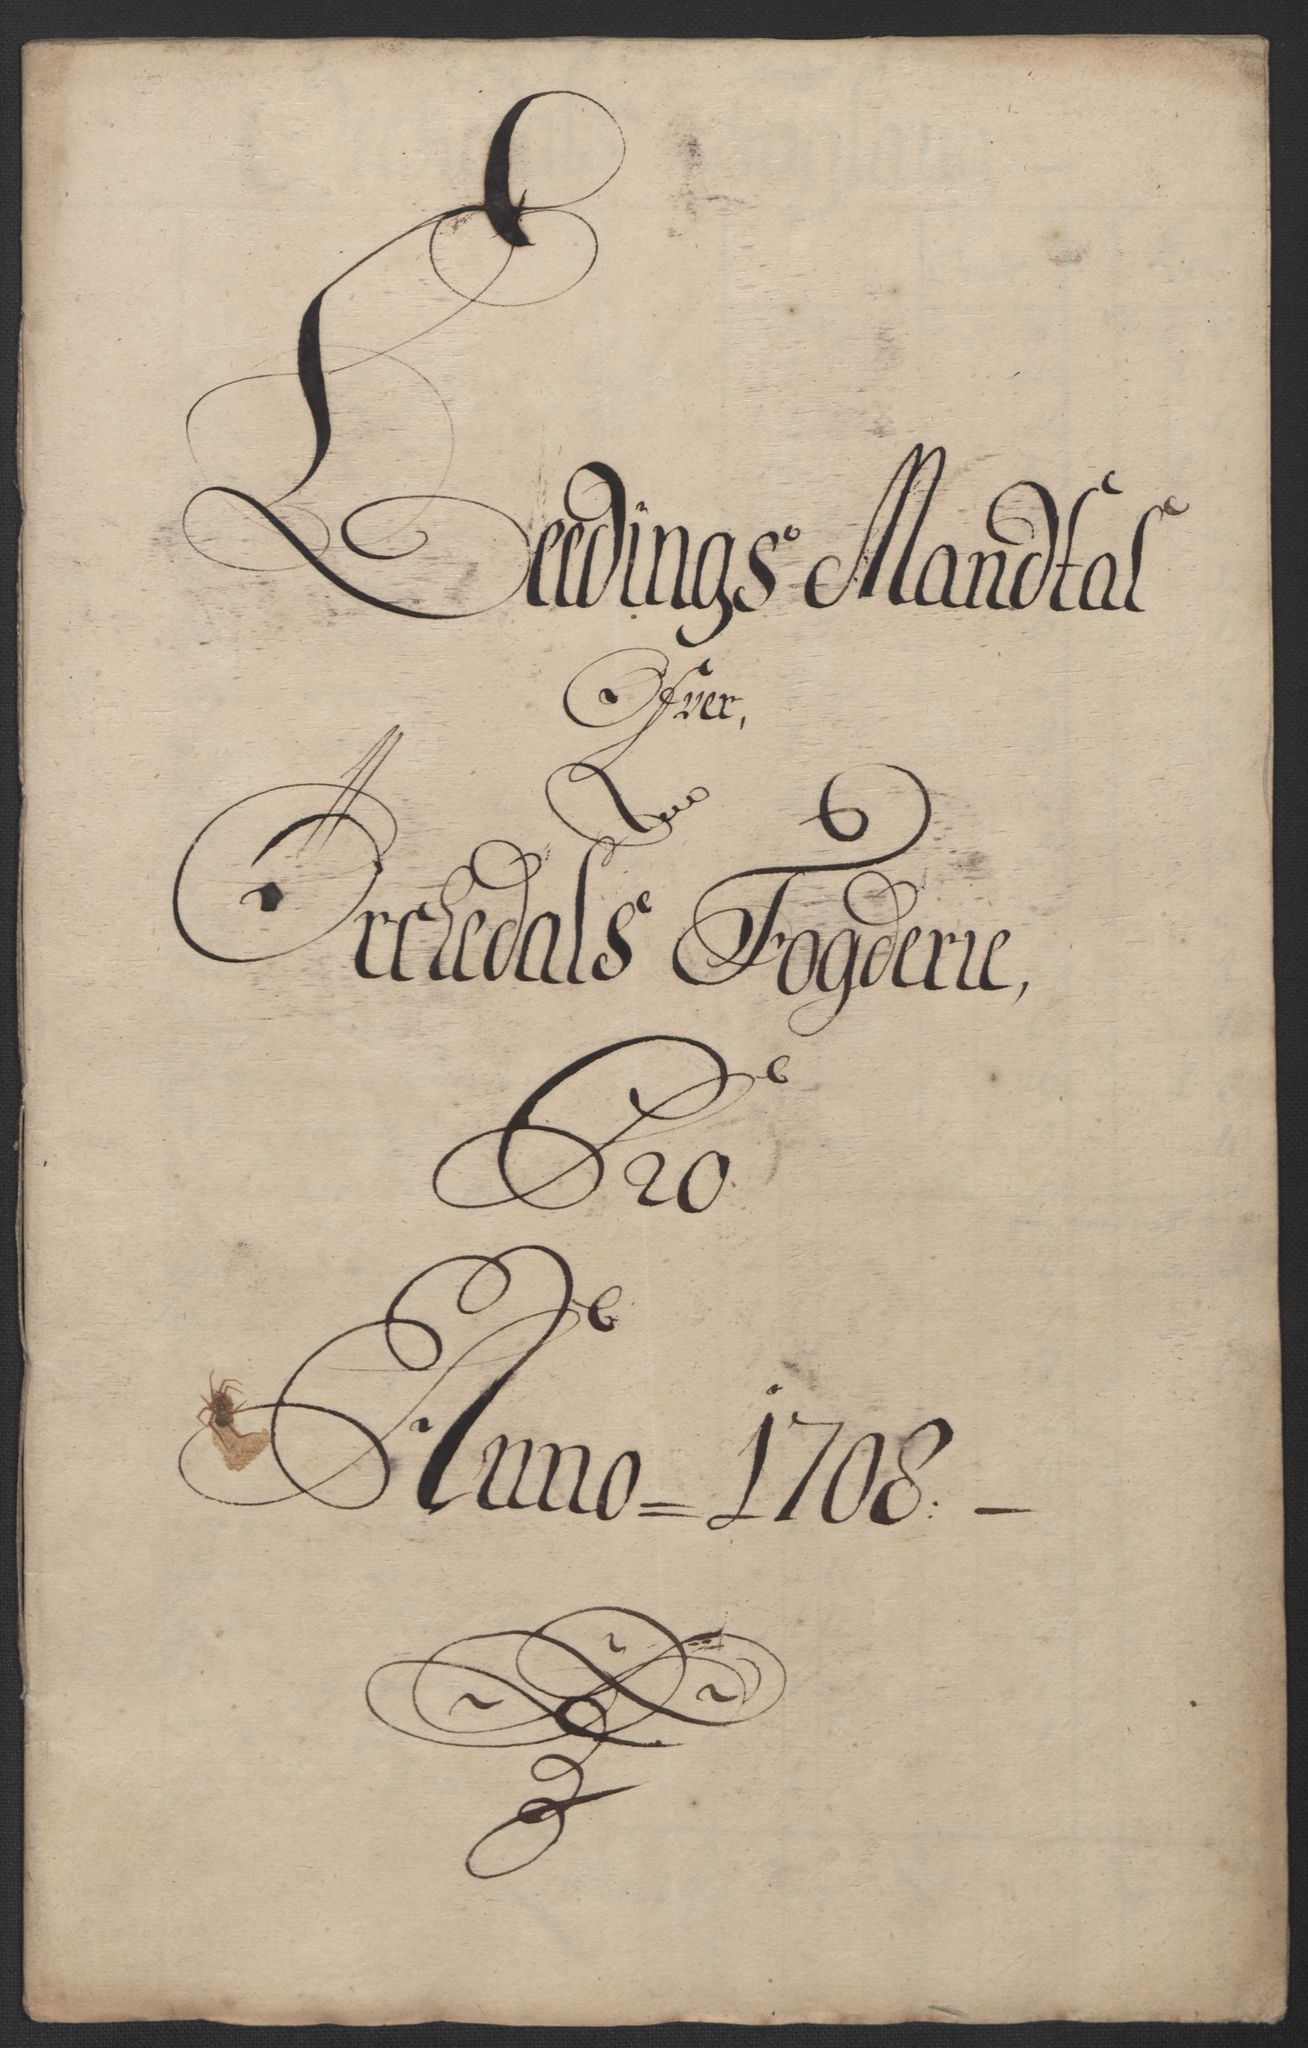 Leedings Mandtal
Ofver,
Orchedals Fogderie,
Pro
Anno = 1708. –